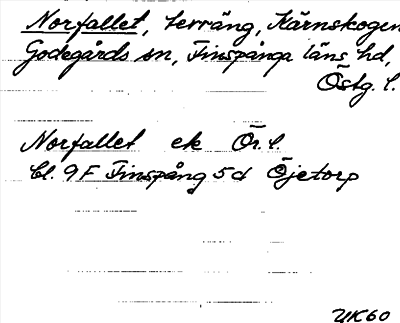 Norfallet, terräng, Kärnskogen
Godegårds sn, Finspånga läns hd,
Östg. l.
Norfallet ek Ör. l.
bl. 9F Finspång 5d Öjetorp
UK60